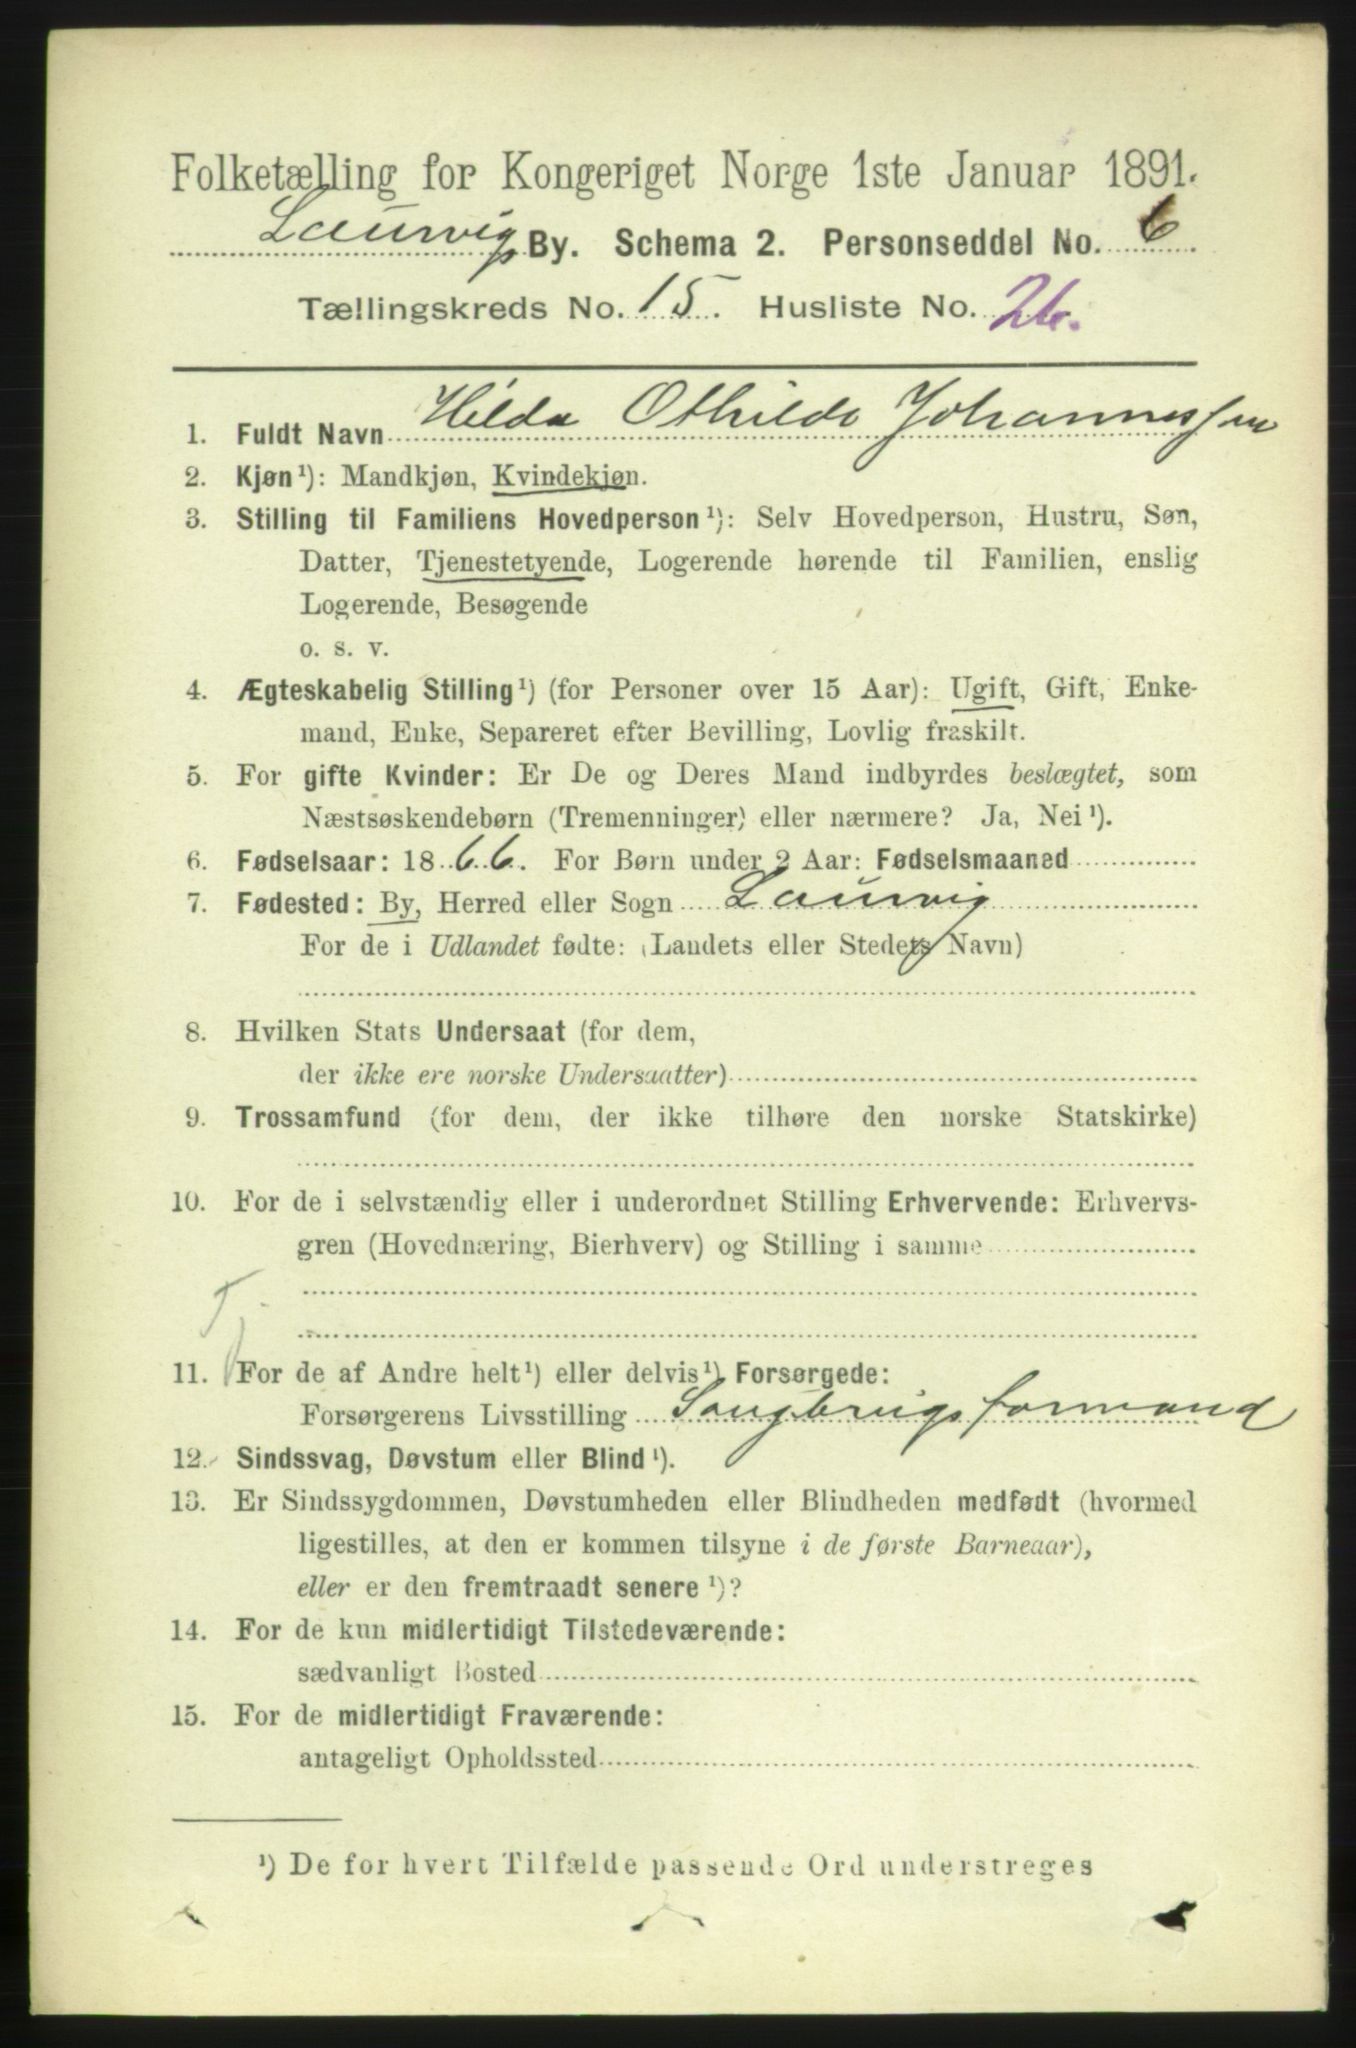 Folketælling for Kongeriget Norge 1ste Januar 1891.
Laurvig By. Schema 2. Personseddel No. 6
Tællingskreds No. 15. Husliste No. 26.
1. Fuldt Navn Hilda Othilde Johannessen
2. Kjøn ¹): Mandkjøn, Kvindekjøn.
3. Stilling til Familiens Hovedperson ¹): Selv Hovedperson, Hustru, Søn,
Datter, Tjenestetyende, Logerende hørende til Familien, enslig
Logerende, Besøgende
o. s. v.
4. Ægteskabelig Stilling ¹) (for Personer over 15 Aar): Ugift, Gift, Enke-
mand, Enke, Separeret efter Bevilling, Lovlig fraskilt.
5. For gifte Kvinder: Er De og Deres Mand indbyrdes beslægtet, som
Næstsøskendebørn (Tremenninger) eller nærmere? Ja, Nei ¹).
6. Fødselsaar: 1866. For Børn under 2 Aar: Fødselsmaaned
7. Fødested: By, Herred eller Sogn Laurvig
For de i Udlandet fødte: (Landets eller Stedets Navn)
8. Hvilken Stats Undersaat (for dem,
der ikke ere norske Undersaatter)
9. Trossamfund (for dem, der ikke tilhøre den norske Statskirke)
10. For de i selvstændig eller i underordnet Stilling Erhvervende: Erhvervs-
gren (Hovednæring, Bierhverv) og Stilling i samme
Tj.
11. For de af Andre helt ¹) eller delvis ¹) Forsørgede:
Forsørgerens Livsstilling Saugbrugsformand
12. Sindssvag, Døvstum eller Blind ¹).
13. Er Sindssygdommen, Døvstumheden eller Blindheden medfødt (hvormed
ligestilles, at den er kommen tilsyne i de første Barneaar),
eller er den fremtraadt senere ¹)?
14. For de kun midlertidigt Tilstedeværende:
sædvanligt Bosted
15. For de midlertidigt Fraværende:
antageligt Opholdssted
¹) De for hvert Tilfælde passende Ord understreges